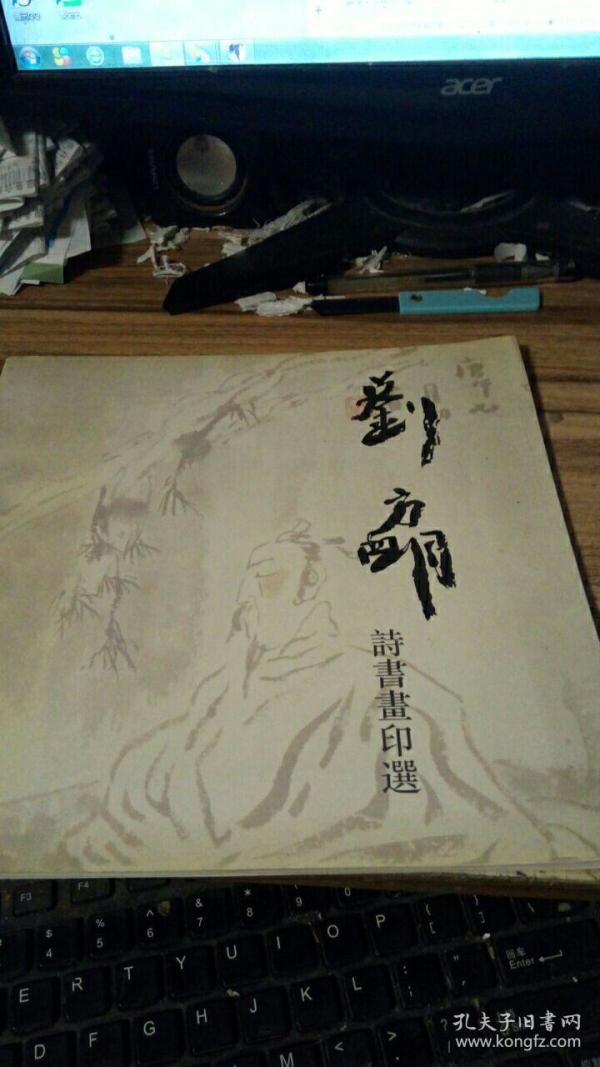 acer
劉
方明
詩書畫印選
F3
F4
$
4
%
5
^
6
&
7
*
8
(
9
)
0
E R T Y U I O P { [
回车
Enter
D F G H J K L : ;
M <
孔夫子旧書网
www.kongfz.com